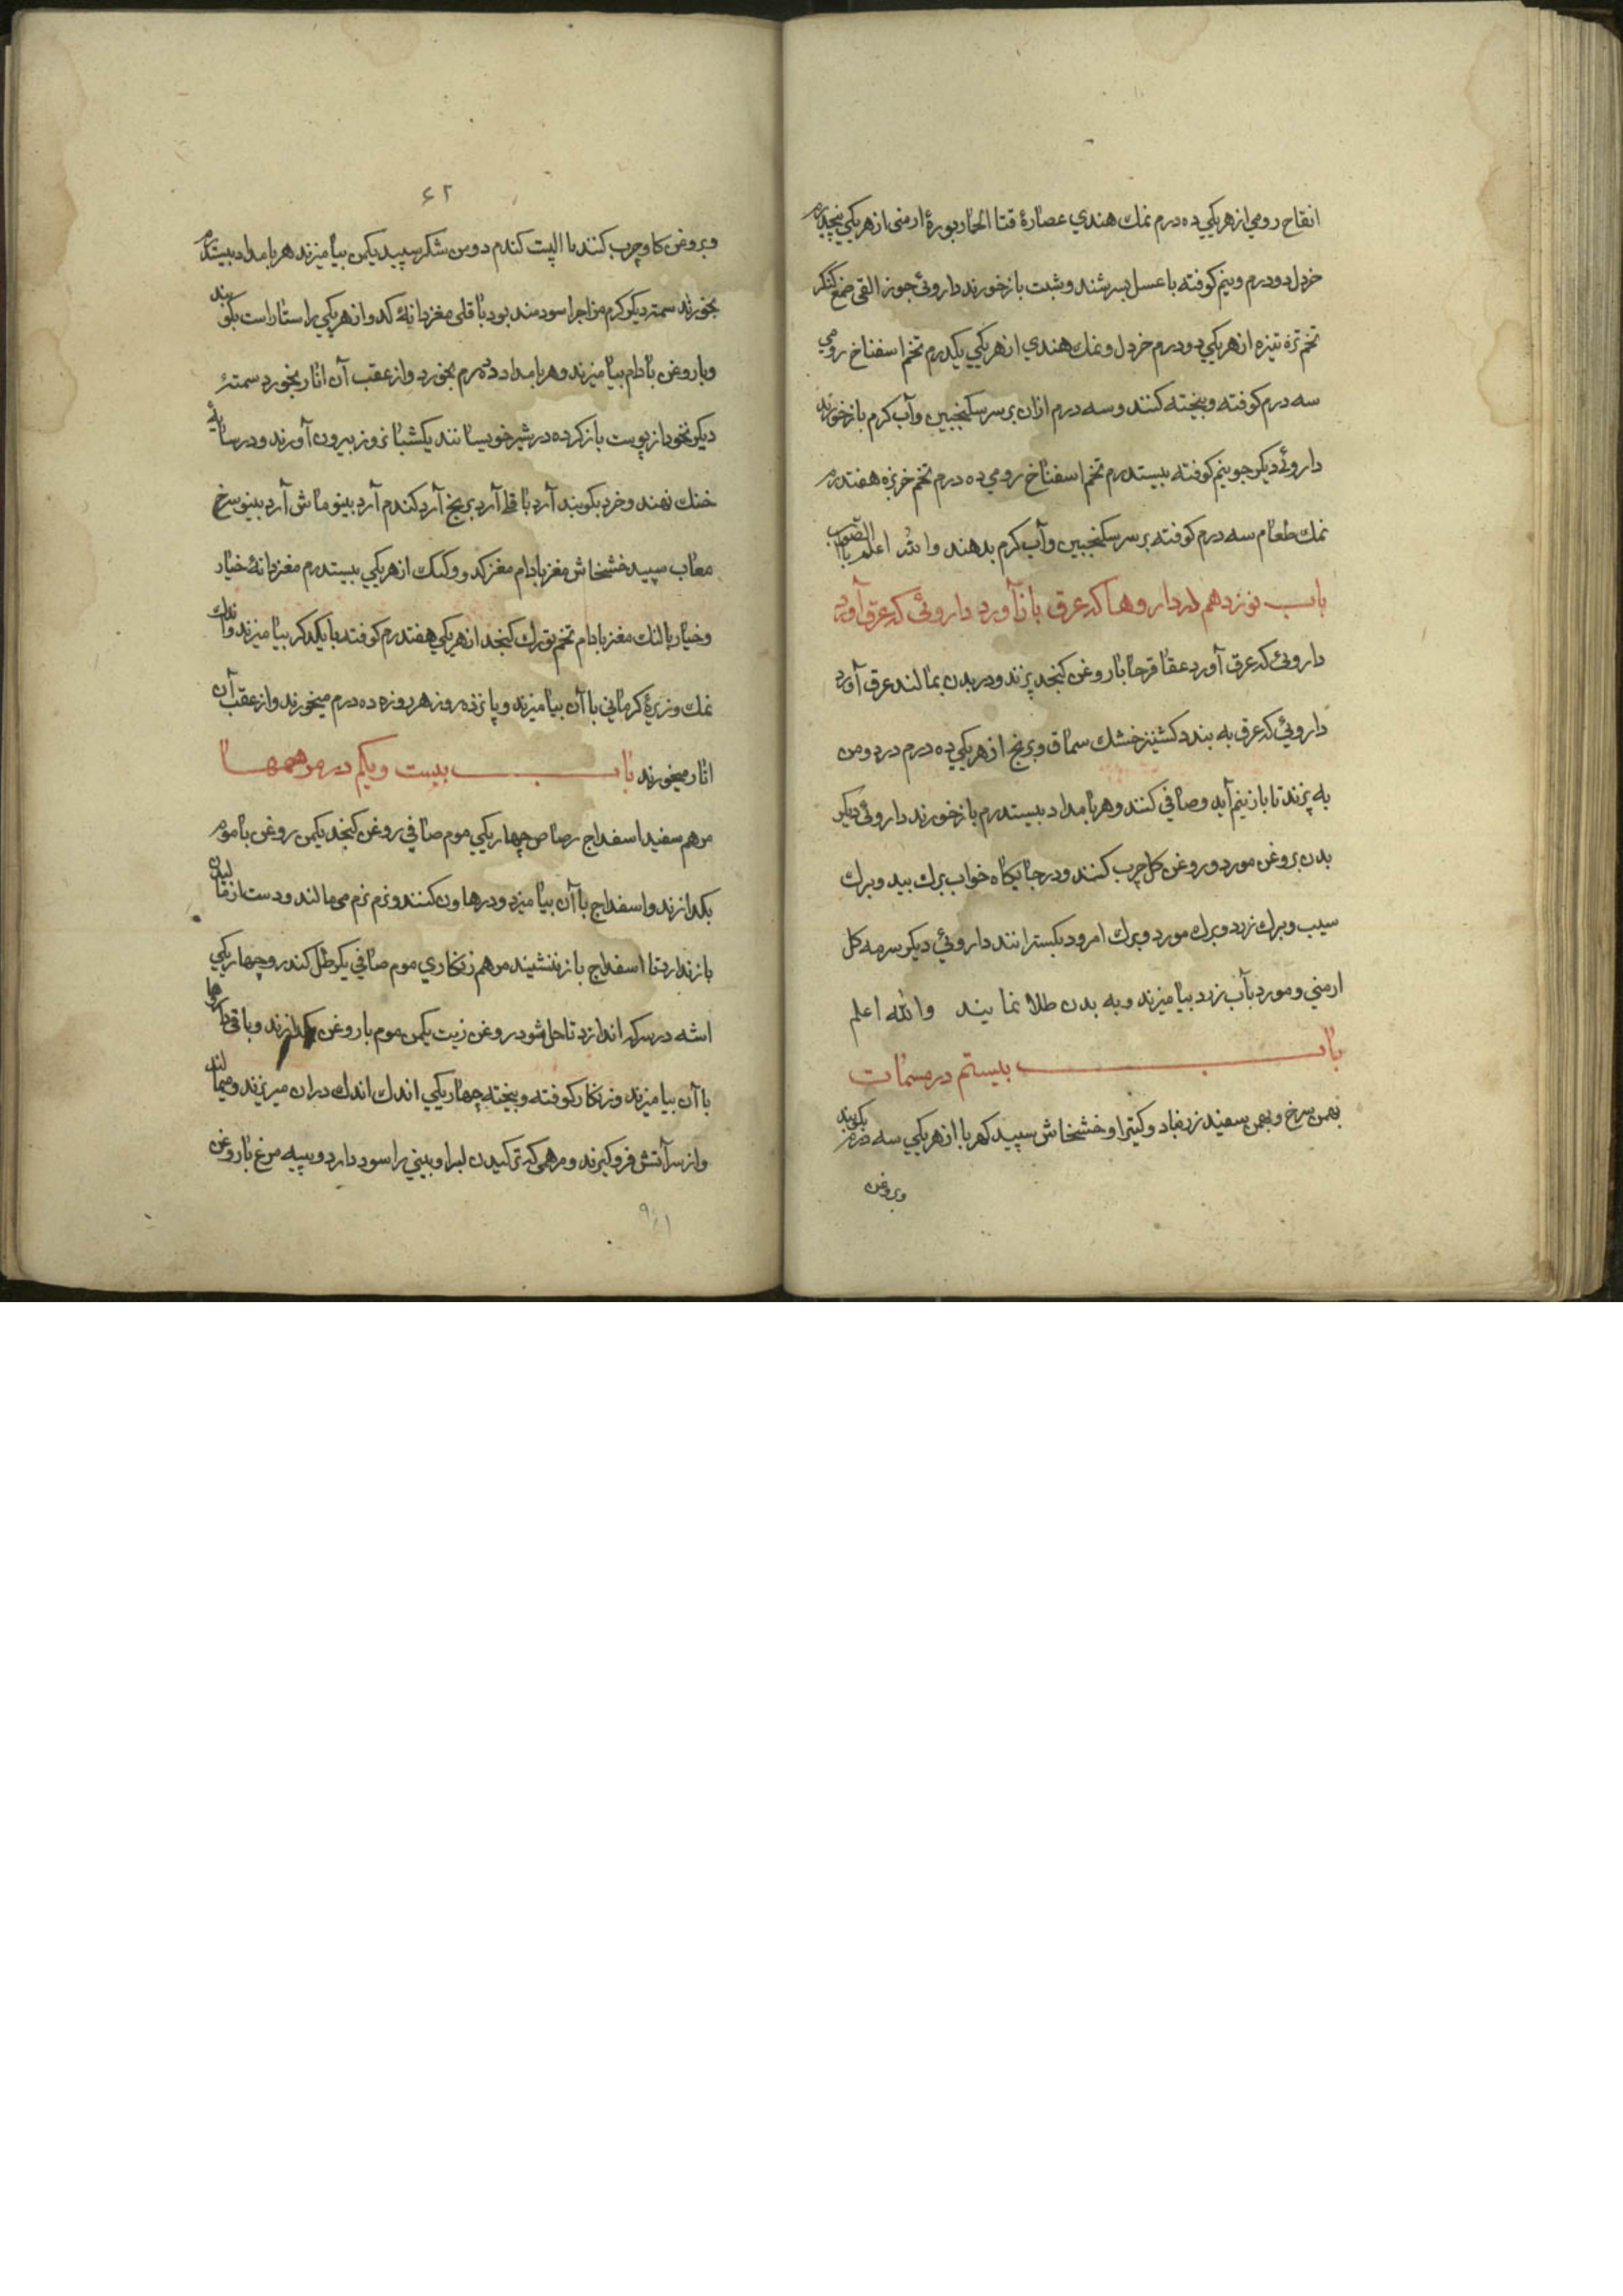 انقاح رومي از هريكي ده درم نمك هندي عصارهٔ قثا الحمار بورهٔ ارمنى از هريكي پنجدرم
خردل دو درم ونيم كوفته با عسل بسرشند و شبت باز خورند داروئى جوز القى صمغ كنكر
تخم تره تيزه از هريكي دو درم خردل و نمك هندي از هريكي يكدرم تخم اسفناخ رومي
سه درم كوفته و بيخته كنند و سه درم ازان بر سر سكنجبين و آب كرم باز خورند
داروئى ديكر جو نيم كوفته بيستدرم تخم اسفناخ رومي ده درم تخم خربزه هفتدرم
نمك طعام سه درم كوفته بر سر سكنجبين و آب كرم بدهند والله اعلم بالصواب
باب نوزدهم در داروها كه عرق باز آورد داروئى كه عرق آورد
داروئى كه عرق آورد عقاقرحا با روغن كنجد پزند و در بدن بمالند عرق آورد
داروئي كه عرق به بندد كشنيز خشك سماق و برنج از هريكي ده درم در دو من
به پزند تا باز نيم آيد و صافي كنند و هر بامداد بيستدرم باز خورند داروئى ديكر
بدن بروغن مورد و روغن كل چرب كنند و در جايكاه خواب برك بيد و برك
سيب و برك زرد و برك مورد و برك امرود بكسترانند داروئى ديكر سرمه كل
ارمني و مورد بآب زرد بياميزند و به بدن طلا نمايند والله اعلم
باب بيستم در مسمنات
بهمن سرخ و بهمن سفيد زرنباد و كتيرا و خشخاش سپيد كهربا از هريكي سه درم بكوبند
و بروغن
۶۲
و بروغن كاو چرب كنند با الپت كندم دو من شكر سپيد يكمن بياميزند هر بامداد بيستدرم
بخورند سمنه ديكر كرم مزاجرا سودمند بود باقلى مغز دانهٔ كدو از هريكي راستاراست بكوبند
و با روغن بادام بياميزند و هر بامداد ده درم بخورد و از عقب آن انار بخورد سمنهٔ
ديكر نخود از پوست باز كرده در شير خويسانند يكشبانروز بيرون آورند و در سايهٔ
خنك نهند و خرد بكوبند آرد باقلا آرد برنج آرد كندم آرد بينو ماش آرد بينو سرخ
معاب سپيد خشخاش مغز بادام مغز كدو و كنك از هريكي بيستدرم مغز دانهٔ خيار
و خيار بالنك مغز بادام تخم تورك كنجد از هريكي هفتدرم كوفته با يكدكر بياميزند و اندك
نمك و زيرهٔ كرماني با آن بياميزند و پانزده روز هر روزه ده درم ميخورند و از عقب آن
انار ميخورند باب بيست و يكم در مرهمها
مرهم سفيد اسفداج رصاص چهار يكي موم صافي روغن كنجد يكمن روغن با موم
بكدازند و اسفداج با آن بياميزد و در هاون كنند و نرم نرم مى مالند و دست از ماليدن
باز ندارد تا اسفداج باز ننشيند مرهم زنكاري موم صافي يك رطل كندر و چهار يكي
اشه در سركه اندازد تا حل شود روغن زيت يكمن موم با روغن بكدازند و باقى داروها
با آن بياميزند و زنكار كوفته و بيخته چهار يكي اندك اندك دران ميريزند و ميمالند
و از سر آتش فرو كيرند و مرهمى كه تركيدن لب را و بيني را سود دارد و پيه مرغ با روغن